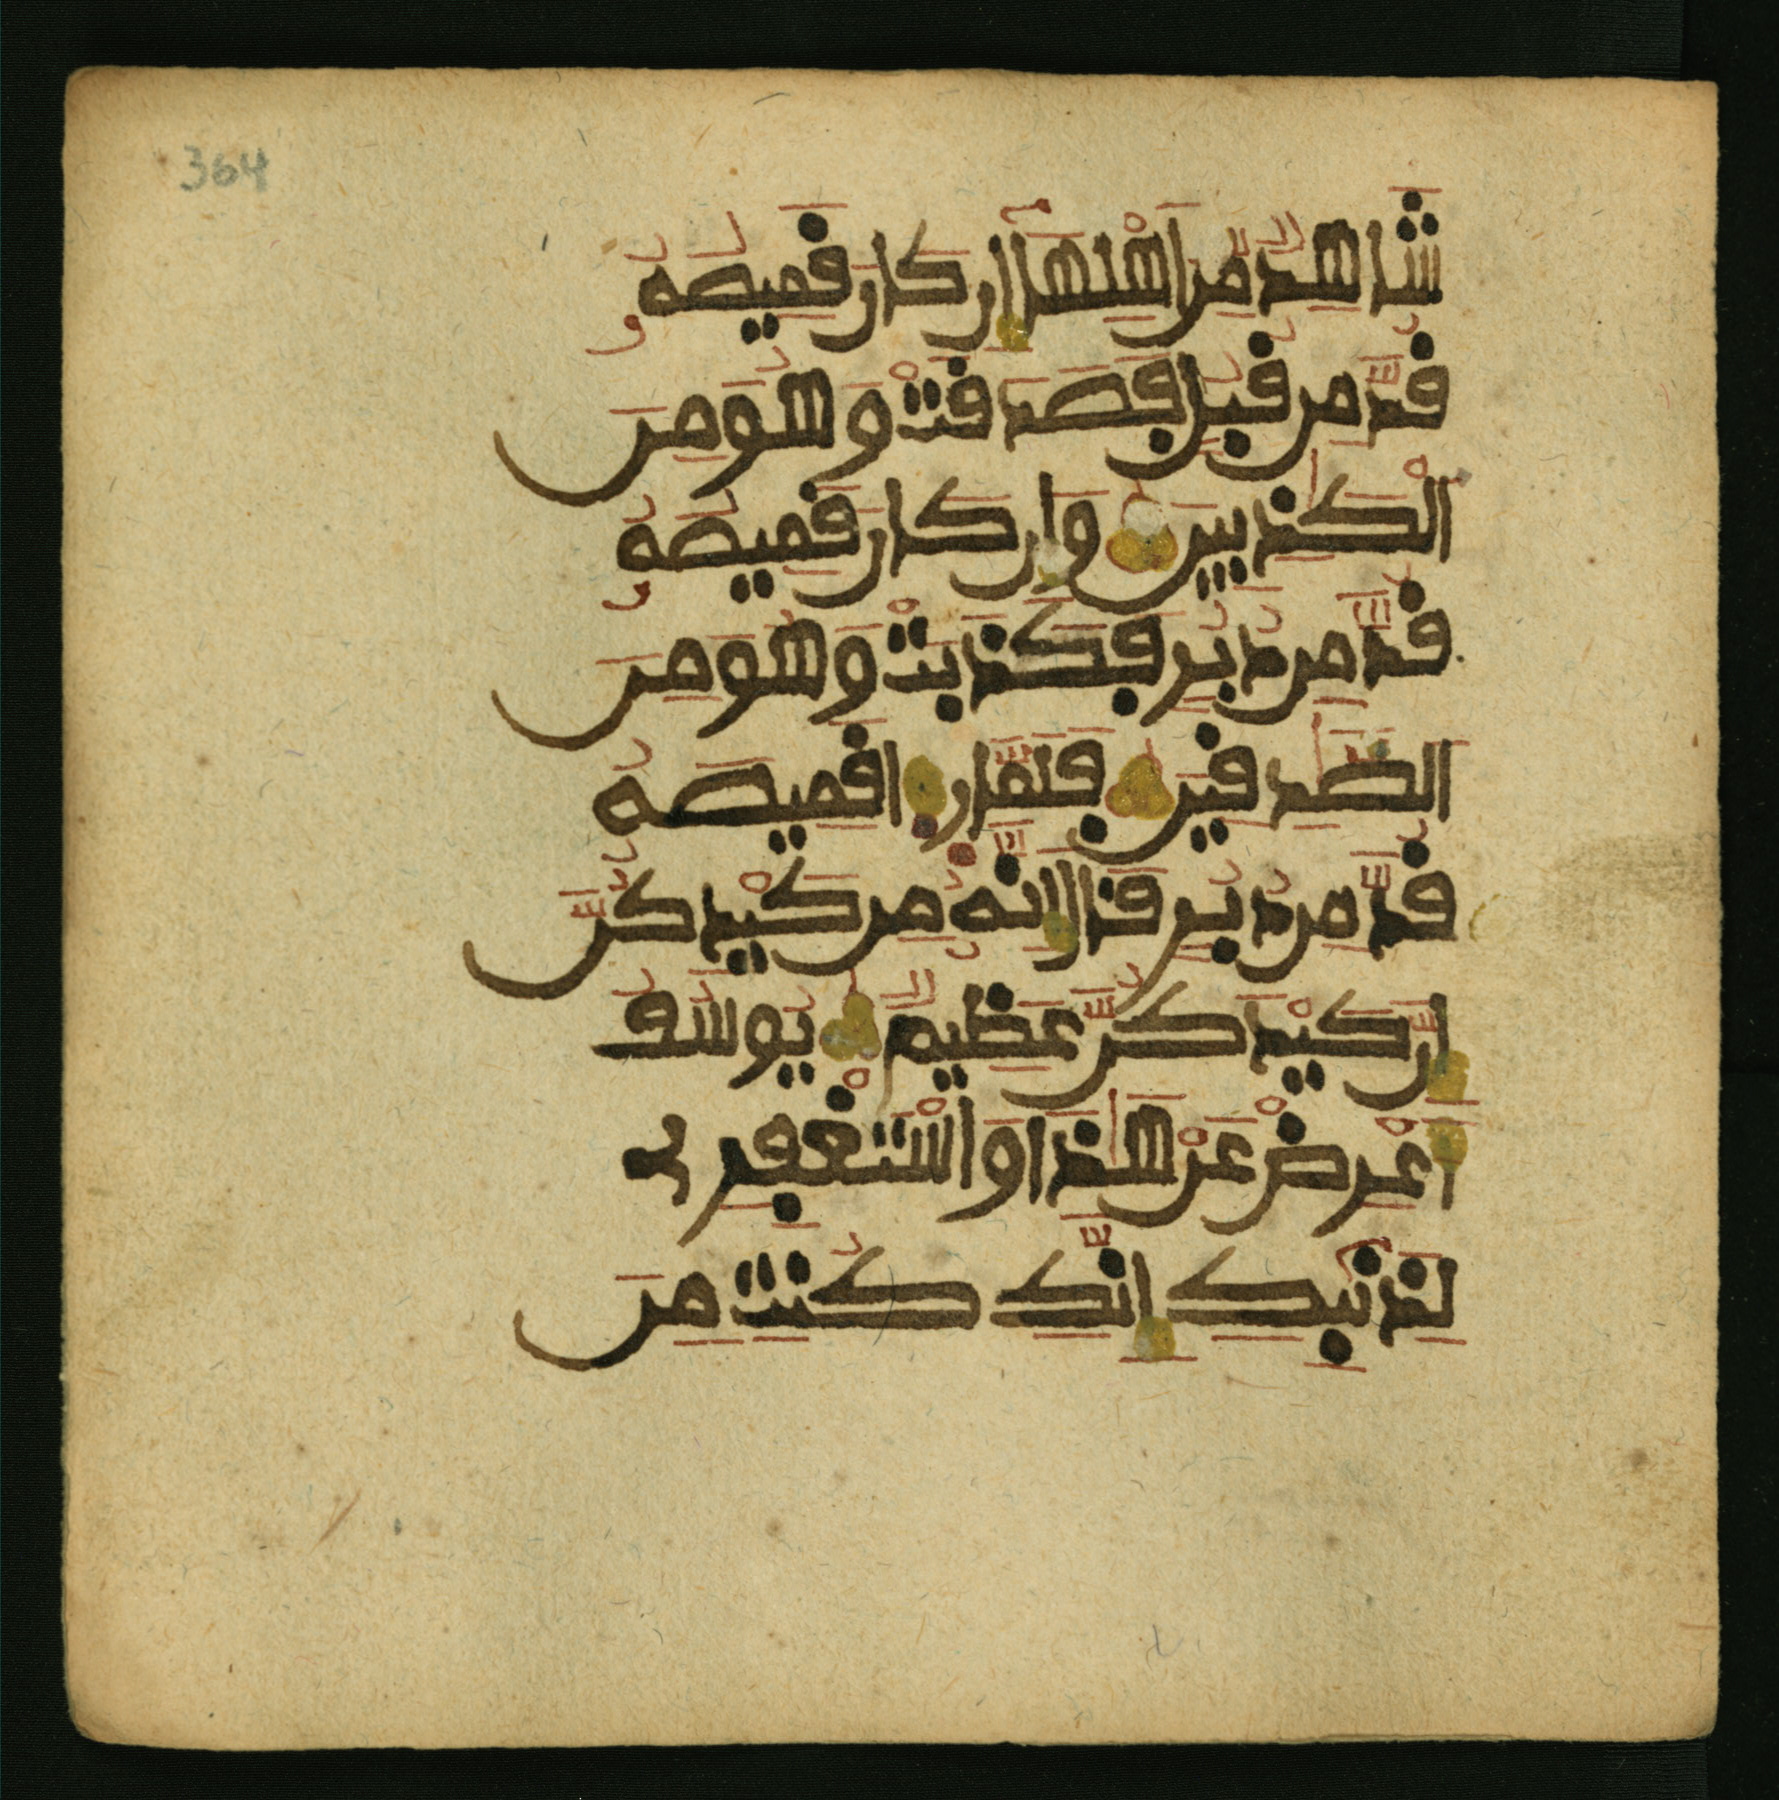 364
شَاهِدٌ مِّنَ اَهْلِهَآ إِن كَانَ قَمِيصُهُۥ
قُدَّ مِن قُبُلٍ فَصَدَقَتْ وَهُوَ مِنَ
الْكَٰذِبِينَ وَإِن كَانَ قَمِيصُهُۥ
قُدَّ مِن دُبُرٍ فَكَذَبَتْ وَهُوَ مِنَ
الصَّٰدِقِينَ فَلَمَّا رَءَا قَمِيصَهُۥ
قُدَّ مِن دُبُرٍ قَالَ إِنَّهُۥ مِن كَيْدِكُنَّ
إِنَّ كَيْدَكُنَّ عَظِيمٌ يُوسُفُ
أَعْرِضْ عَنْ هَٰذَا وَاسْتَغْفِرِے
لِذَنۢبِكِ إِنَّكِ كُنتِ مِنَ